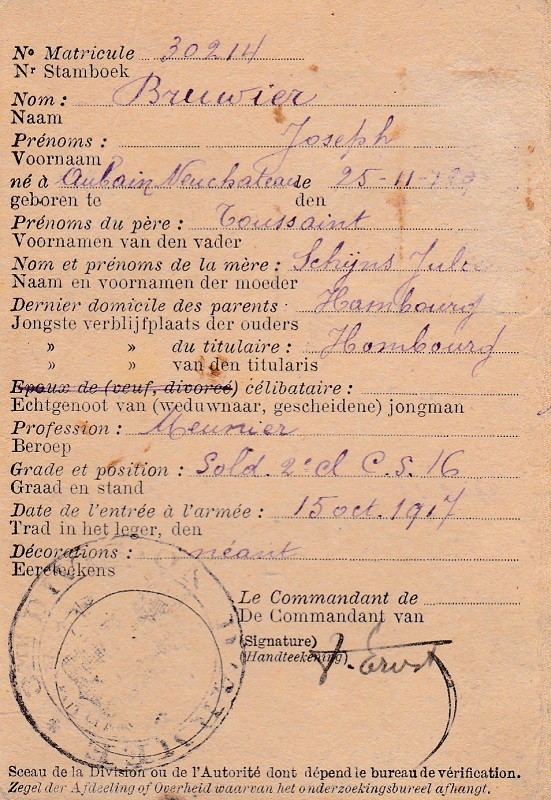 Nº Matricule 30214
Nr Stamboek
Nom : Bruwier
Naam
Prénoms : Joseph
Voornaam
né à Aubain Neuchateau le 25-11-189
geboren te den
Prénoms du père : Toussaint
Voornamen van den vader
Nom et prénoms de la mère : Schÿns Julie
Naam en voornamen der moeder
Dernier domicile des parents : Hombourg
Jongste verblijfplaats der ouders
» » du titulaire : Hombourg
» » van den titularis
Epoux de (veuf, divorcé) célibataire :
Echtgenoot van (weduwnaar, gescheidene) jongman
Profession : Meunier
Beroep
Grade et position : Sold. 2e cl C.S. 16
Graad en stand
Date de l'entrée à l'armée : 15 oct. 1917
Trad in het leger, den
Décorations : néant
Eereteekens
Le Commandant de
De Commandant van
(Signature)
(Handteekening)
Sceau de la Division ou de l'Autorité dont dépend le bureau de vérification.
Zegel der Afdeeling of Overheid waarvan het onderzoekingsbureel afhangt.